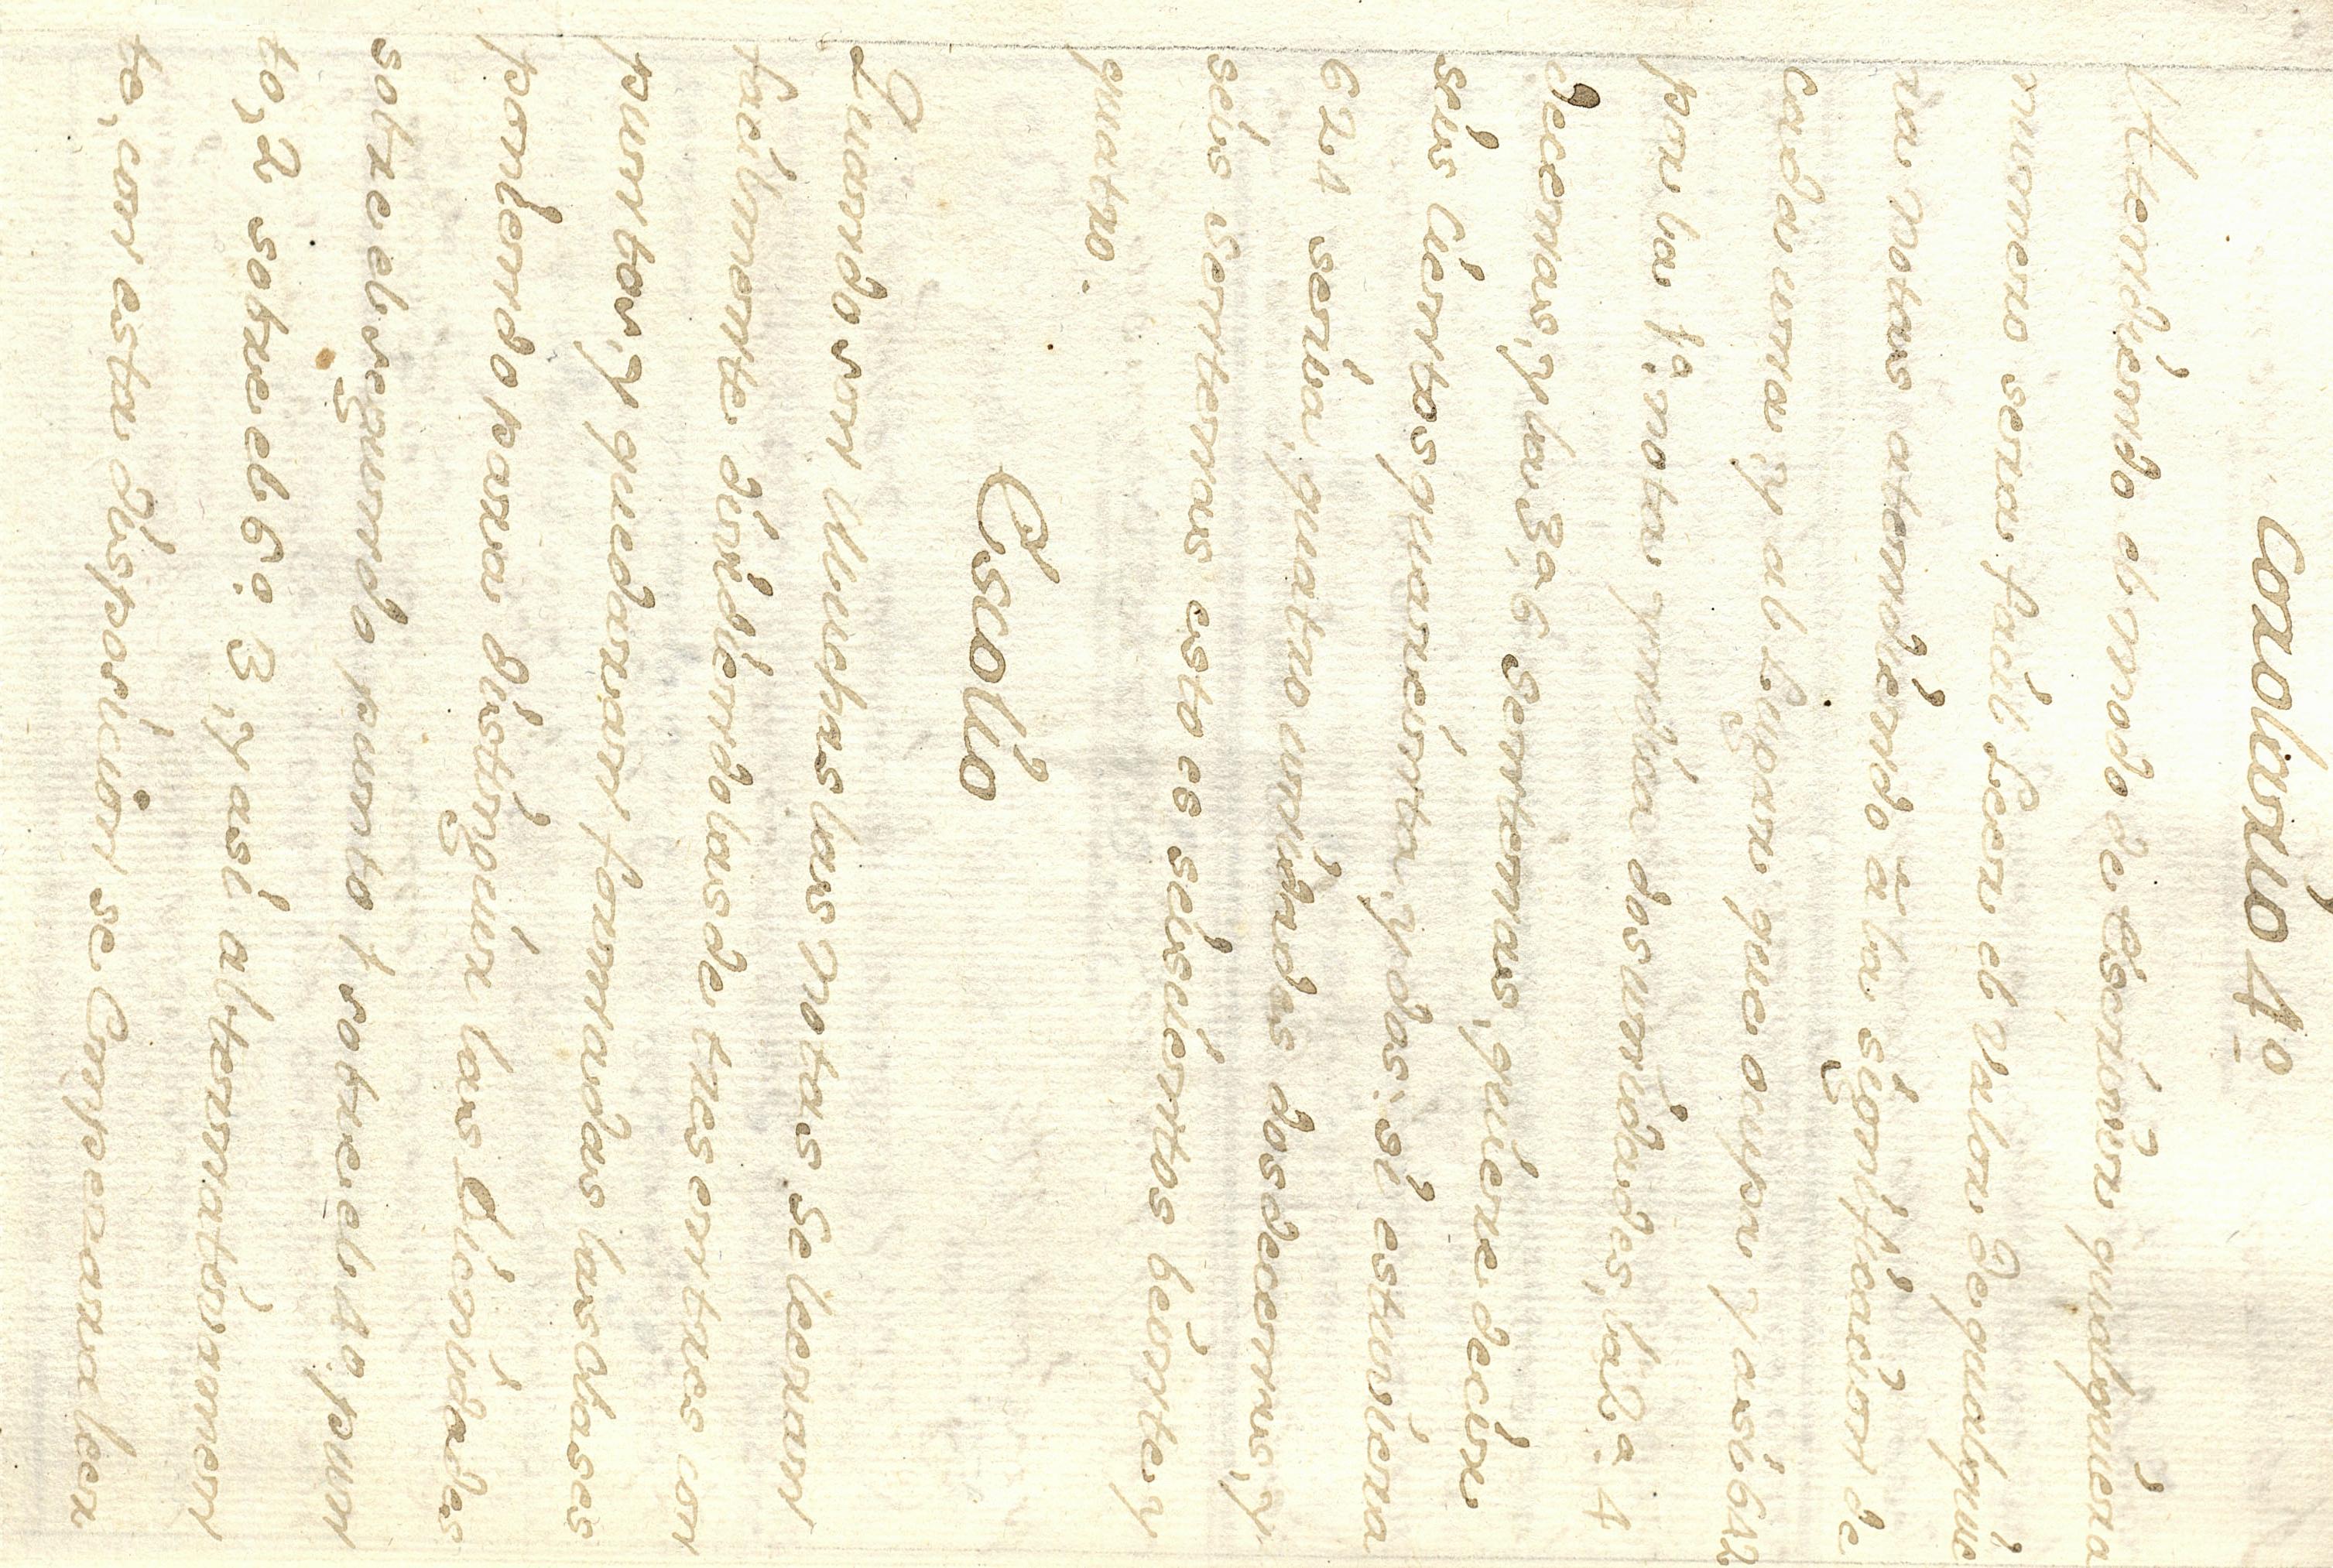 Corolario 4.º
Atendiendo el modo de escrivir qualquiera
numero sera facil Leer el valor de qualquie
ra notas atendiendo à la significacion de
cada una, y al Lugar que ocupa y asi 642
por la 1.ª nota yndica dos unidades, la 2.ª 4
decenas, y la 3.ª 6 sentenas, quiere decir
seis cientos quareinta, y dos: si estuviera
624 seria, quatro unidades dos decenas, y
seis sentenas esto es seiscientos beinte y
quatro.
Escolio
Quando son Muchas las notas Se leeran
facilmente dividiendolas de tres en tres con
puntos, y quedaran formadas las clases
poniendo para distinguir las Divicidades
sobre el segundo punto 1 sobre el 4.º pun
to, 2 sobre el 6.º 3, y asi alternativamen
te, con esta disposicion se Comperara leer